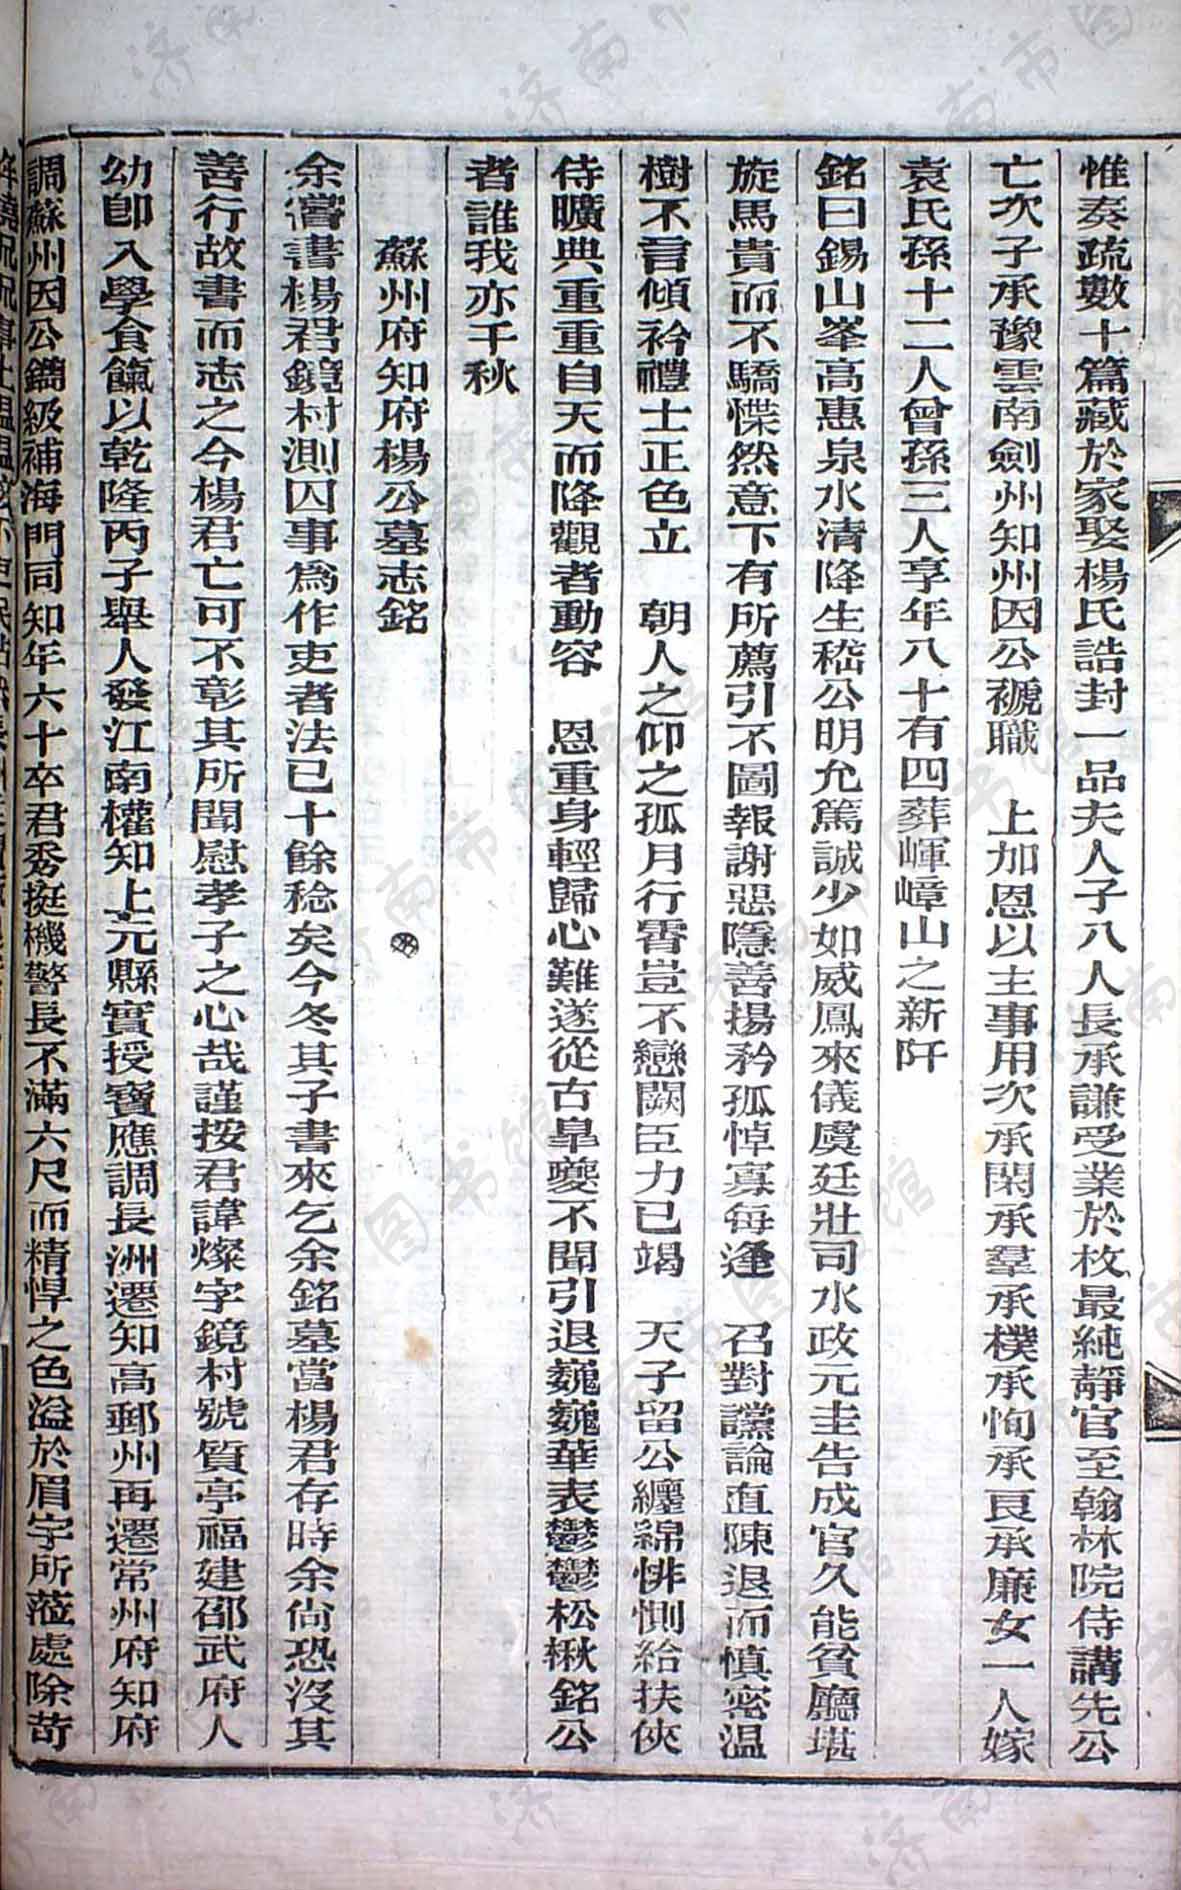 惟奏疏數十篇藏於家娶楊氏誥封一品夫人子八人長承謙受業於枚最純靜官至翰林院侍講先公
亡次子承豫雲南劍州知州因公褫職　上加恩以主事用次承閑承羣承樸承恂承艮承廉女一人嫁
袁氏孫十二人曾孫三人享年八十有四葬嶂山之新阡
銘曰錫山峯高惠泉水清降生嵇公明允篤誠少如威鳳來儀虞廷壯司水政元圭告成官久能貧廳堪
旋馬貴而不驕惵然意下有所薦引不圖報謝惡隱善揚矜孤悼寡每逢　召對讜論直陳退而慎密溫
樹不言傾衿禮士正色立　朝人之仰之孤月行霄豈不戀闕臣力已竭　天子留公纏綿悱惻給扶俠
侍曠典重重自天而降觀者動容　恩重身輕歸心難遂從古皐夔不聞引退巍巍華表鬱鬱松楸銘公
者誰我亦千秋
蘇州府知府楊公墓志銘
余嘗書楊君鏡村測囚事爲作吏者法已十餘稔矣今冬其子書來乞余銘墓當楊君存時余尙恐沒其
善行故書而志之今楊君亡可不彰其所聞慰孝子之心哉謹按君諱燦字鏡村號質亭福建邵武府人
幼卽入學食餼以乾隆丙子舉人發江南權知上元縣實授寶應調長洲遷知高郵州再遷常州府知府
調蘇州因公鐫級補海門同知年六十卒君秀挺機警長不滿六尺而精悍之色溢於眉宇所蒞處除苛